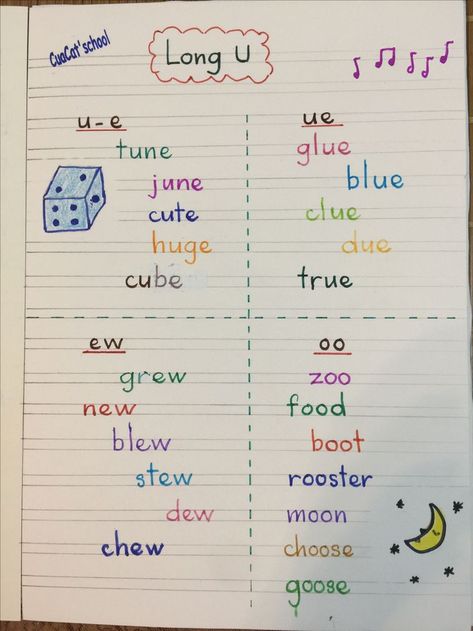 CuaCat'school
Long U
u-e
tune
june
cute
huge
cube
ue
glue
blue
clue
due
true
ew
grew
new
blew
stew
dew
chew
oo
zoo
food
boot
rooster
moon
choose
goose